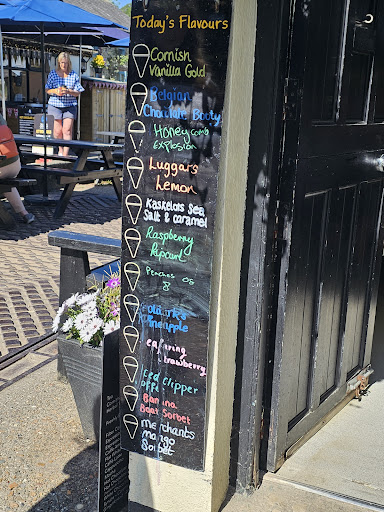 Today's Flavours
Cornish
Vanilla Gold
Belgian
Chocolate Booty
Honeycomb
Explosion
Luggars
Lemon
Kaskelots Sea
Salt & caramel
Raspberry
Ripcurl
Peaches
Pineapple
Strawberry
Clipper
Banana
Boat Sorbet
Merchants
Mango
Sorbet